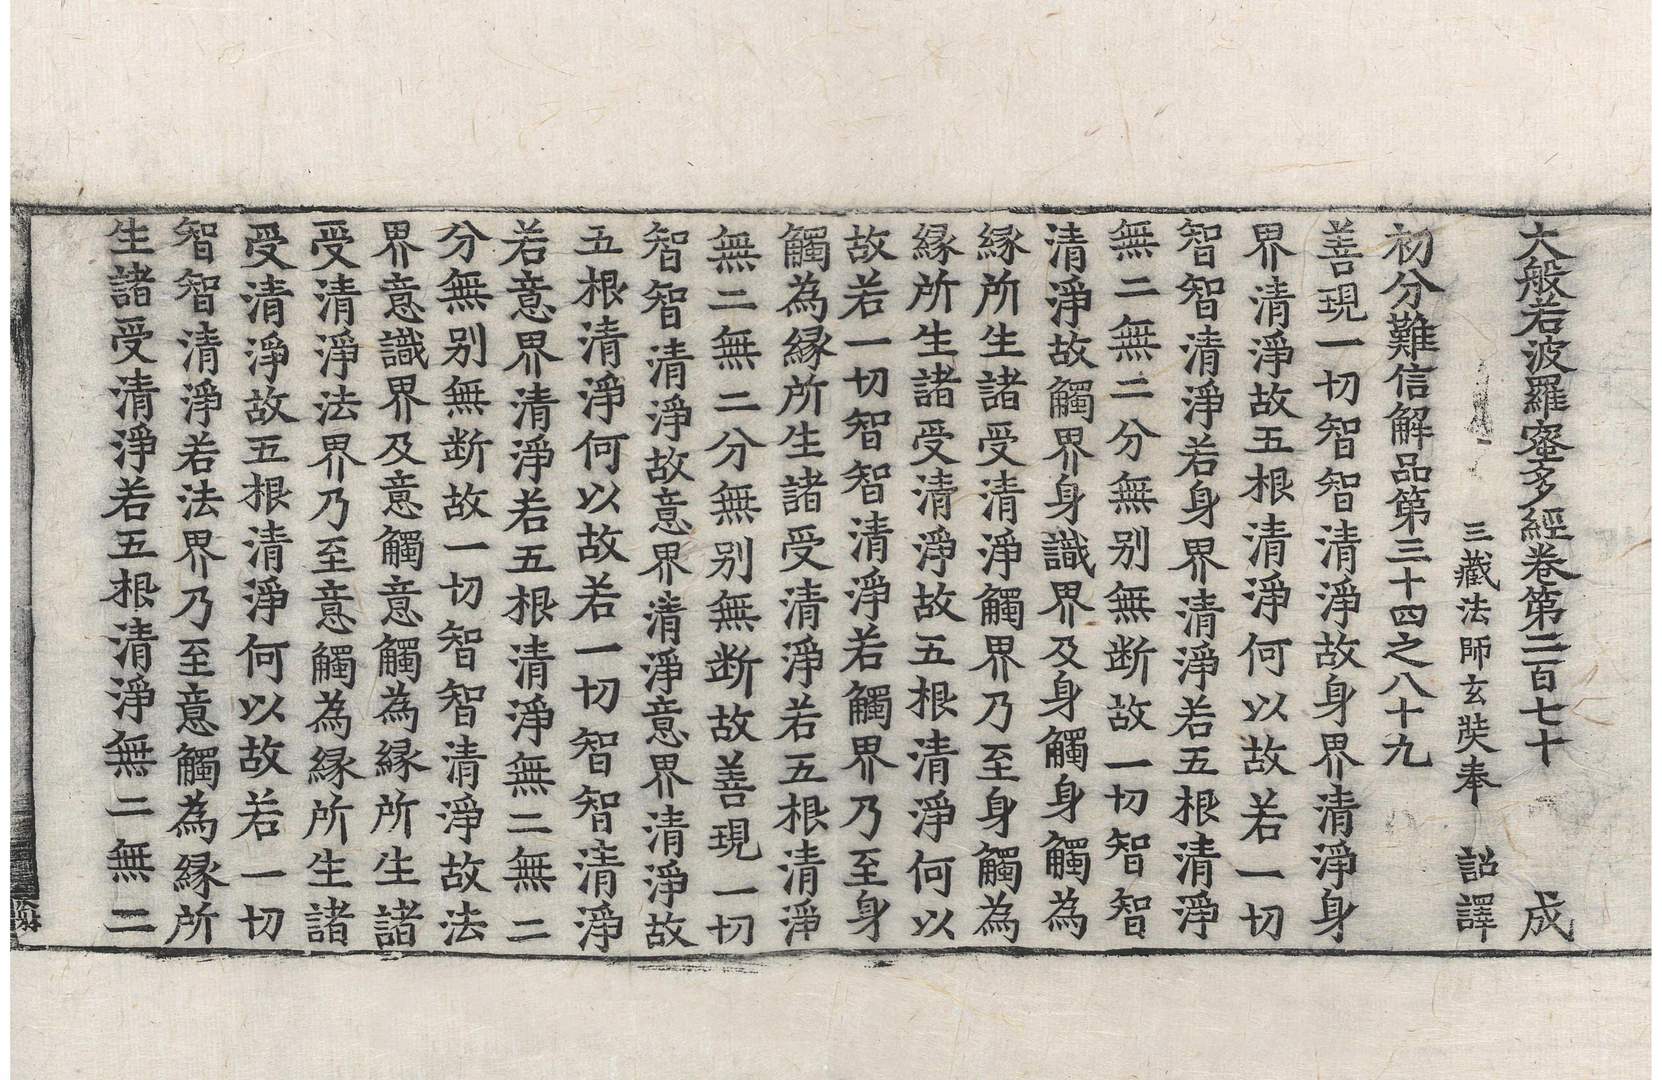 大般若波羅蜜多經卷第二百七十 成
三藏法師玄奘奉 詔譯
初分難信解品第三十四之八十九
善現一切智智清淨故身界清淨身
界清淨故五根清淨何以故若一切
智智清淨若身界清淨若五根清淨
無二無二分無别無断故一切智智
清淨故觸界身識界及身觸身觸為
縁所生諸受清淨觸界乃至身觸為
縁所生諸受清淨故五根清淨何以
故若一切智智清淨若觸界乃至身
觸為縁所生諸受清淨若五根清淨
無二無二分無别無断故善現一切
智智清淨故意界清淨意界清淨故
五根清淨何以故若一切智智清淨
若意界清淨若五根清淨無二無二
分無别無断故一切智智清淨故法
界意識界及意觸意觸為縁所生諸
受清淨法界乃至意觸為縁所生諸
受清淨故五根清淨何以故若一切
智智清淨若法界乃至意觸為縁所
生諸受清淨若五根清淨無二無二